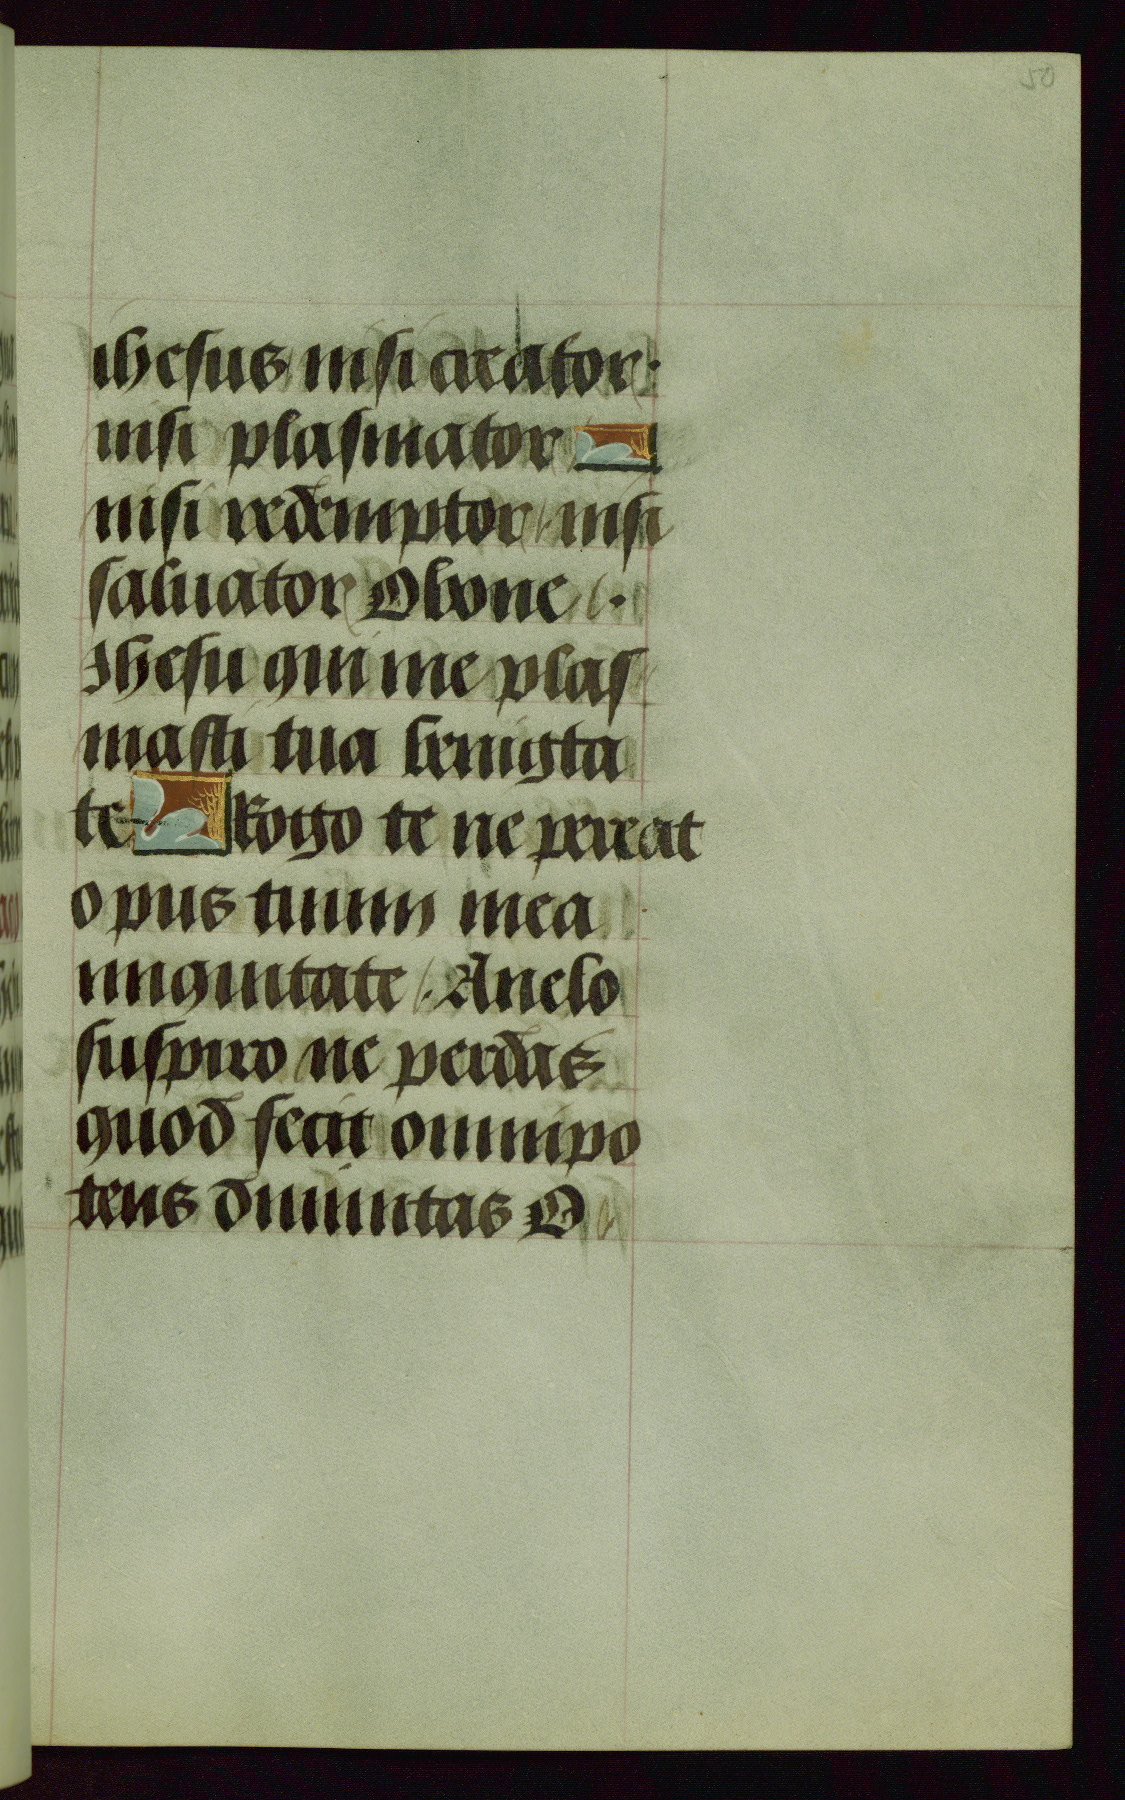 50
ihesus nisi creator.
nisi plasmator
nisi redemptor / nisi
saluator O bone / .
Ihesu qui me plas
masti tua benigta
te Rogo te ne pereat
opus tuum mea
iniquitate /. Anelo
suspiro ne perdas
quod fecit omnipo
tens diuinitas O